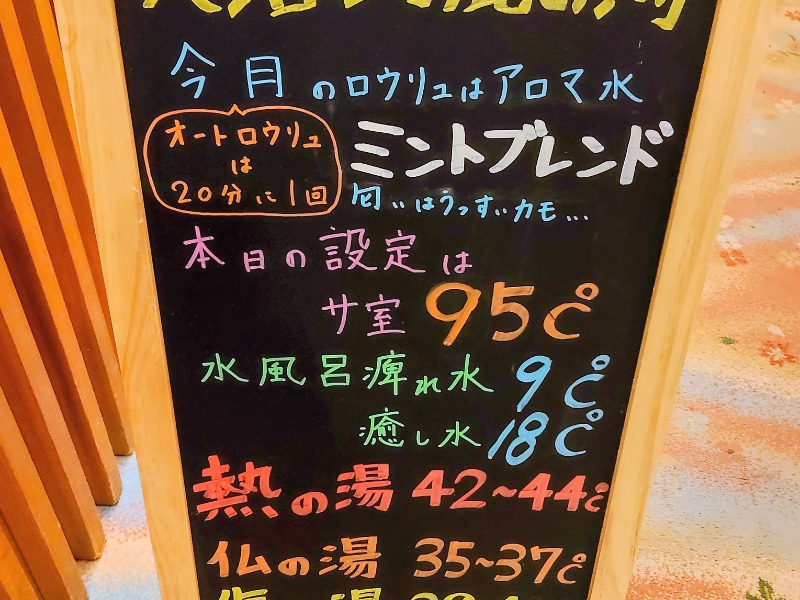 今月のロウリュはアロマ水
オートロウリュ
は
20分に1回
ミントブレンド
匂いはうっすぃカモ...
本日の設定は
サ室 95℃
水風呂痺れ水 9℃
癒し水 18℃
熱の湯 42~44℃
仏の湯 35~37℃